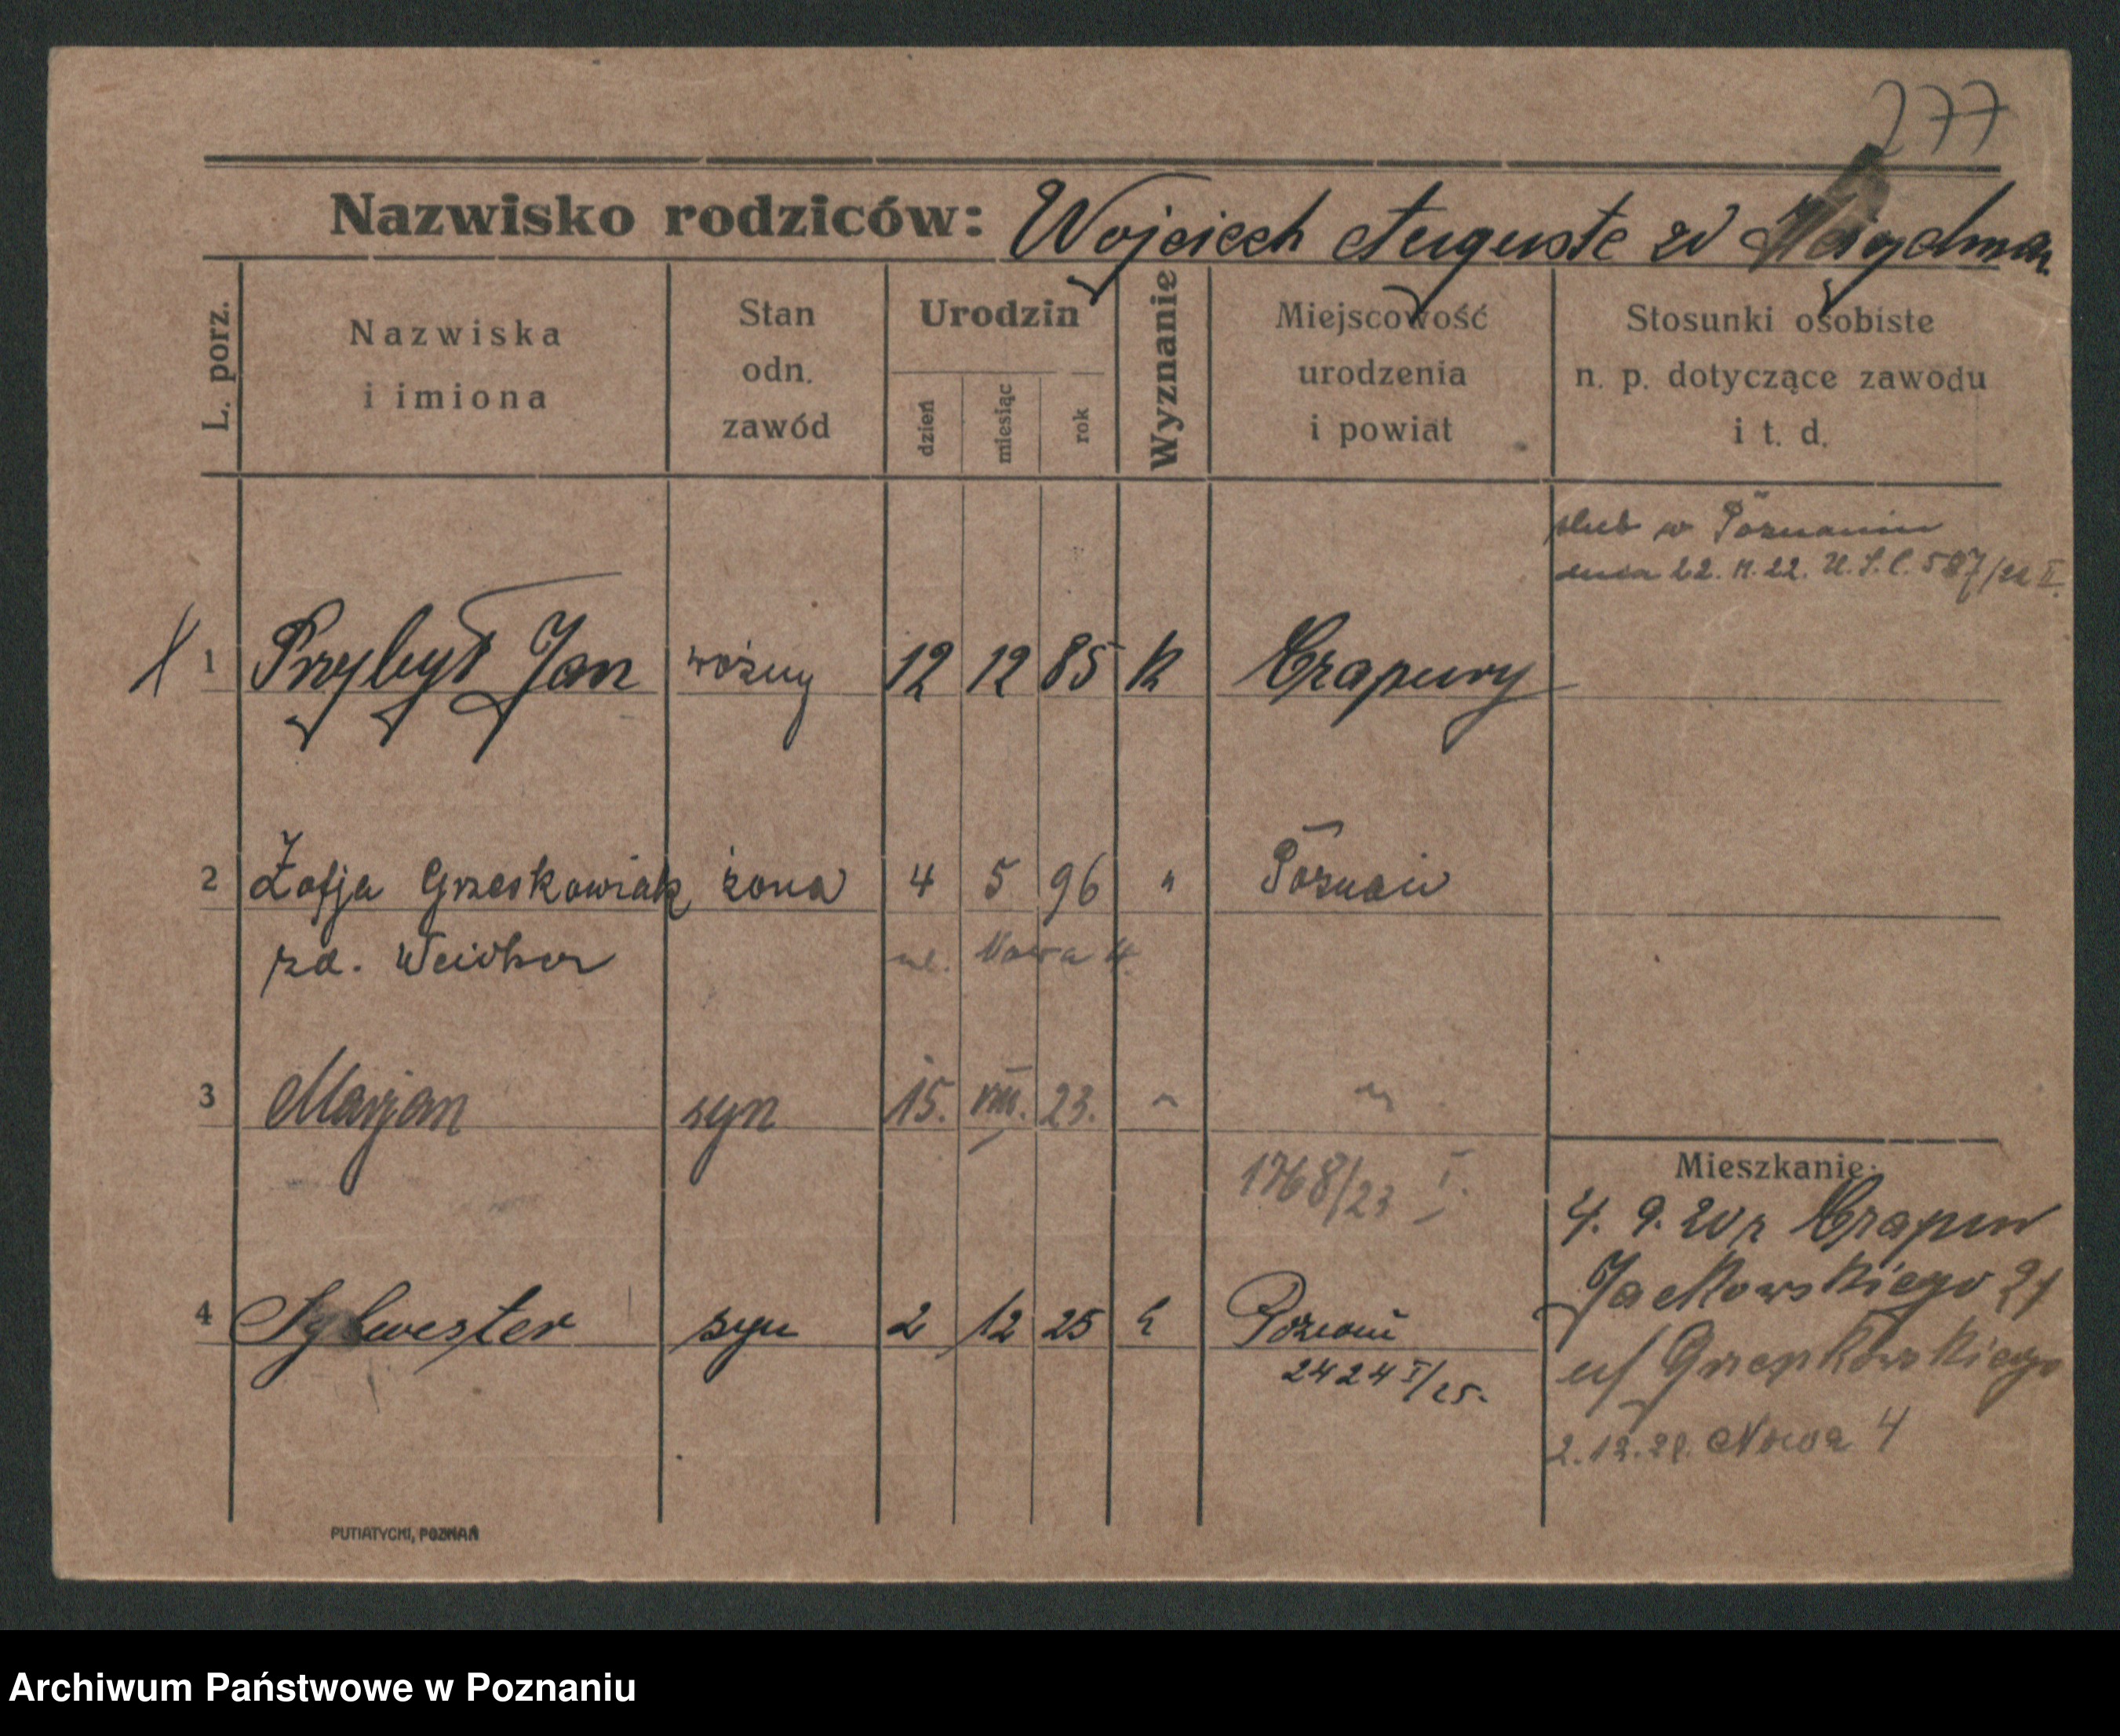 277
Nazwisko rodziców: Wojciech Auguste zd
L. porz.
Nazwiska
i imiona
Stan
odn.
zawód
Urodzin
dzień
miesiąc
rok
Wyznanie
Miejscowość
urodzenia
i powiat
Stosunki osobiste
n. p. dotyczące zawodu
i t. d.
ślub w Poznaniu
dnia 22. 11. 22. U.S.C. 587/22 II.
1 Przybył Jan woźny 12 12 85 k Czapury
2 Zofja Grzeskowiak żona 4 5 96 " Poznań
zd. ul. Nowa 4.
3 Marjan syn 15. VIII. 23. " "
1768/23 I.
Mieszkanie:
4. 9. 20 r Czapur
Jackowskiego 21
4 Sylwester syn 2 12 25 k Poznań
u/
2424 I/25.
2.12.21. Nowa 4
PUTIATYCKI, POZNAŃ
Archiwum Państwowe w Poznaniu